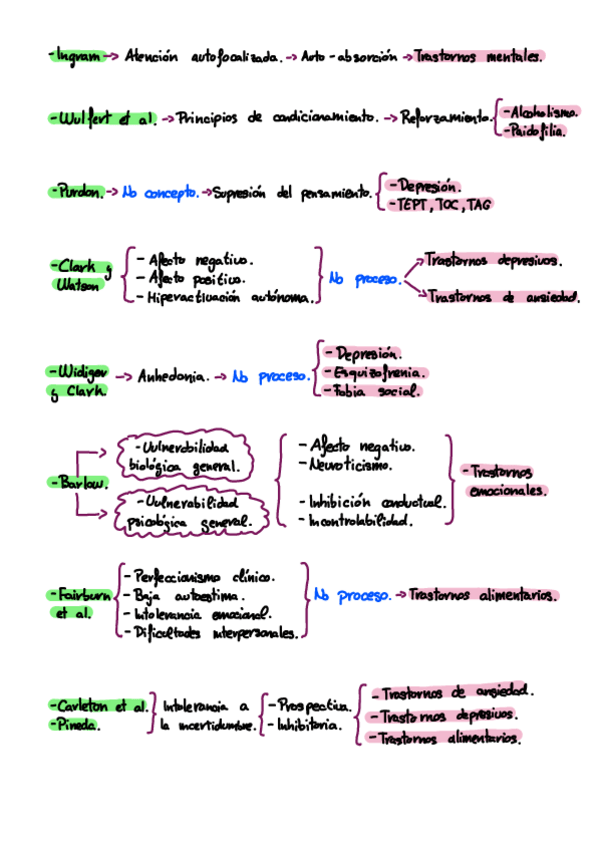 -Ingram -> Atención autofocalizada. -> Auto-absorción -> Trastornos mentales.
-Wulfert et al. -> Principios de condicionamiento. -> Reforzamiento. -Alcoholismo.
-Paidofilia.
-Purdon. -> No concepto. -> Supresión del pensamiento. -Depresión.
-TEPT, TOC, TAG
-Clark y Watson
-Afecto negativo.
-Afecto positivo.
-Hiperactivación autónoma.
No proceso.
Trastornos depresivos.
Trastornos de ansiedad.
-Widiger y Clark. -> Anhedonia. -> No proceso.
-Depresión.
-Esquizofrenia.
-Fobia social.
-Barlow.
-Vulnerabilidad
biológica general.
-Vulnerabilidad
psicológica general.
-Afecto negativo.
-Neuroticismo.
-Inhibición conductual.
-Incontrolabilidad.
-Trastornos
emocionales.
-Fairburn
et al.
-Perfeccionismo clínico.
-Baja autoestima.
-Intolerancia emocional.
-Dificultades interpersonales.
No proceso. -> Trastornos alimentarios.
-Carleton et al.
-Pineda.
Intolerancia a
la incertidumbre.
-Prospectiva.
-Inhibitoria.
-Trastornos de ansiedad.
-Trastornos depresivos.
-Trastornos alimentarios.